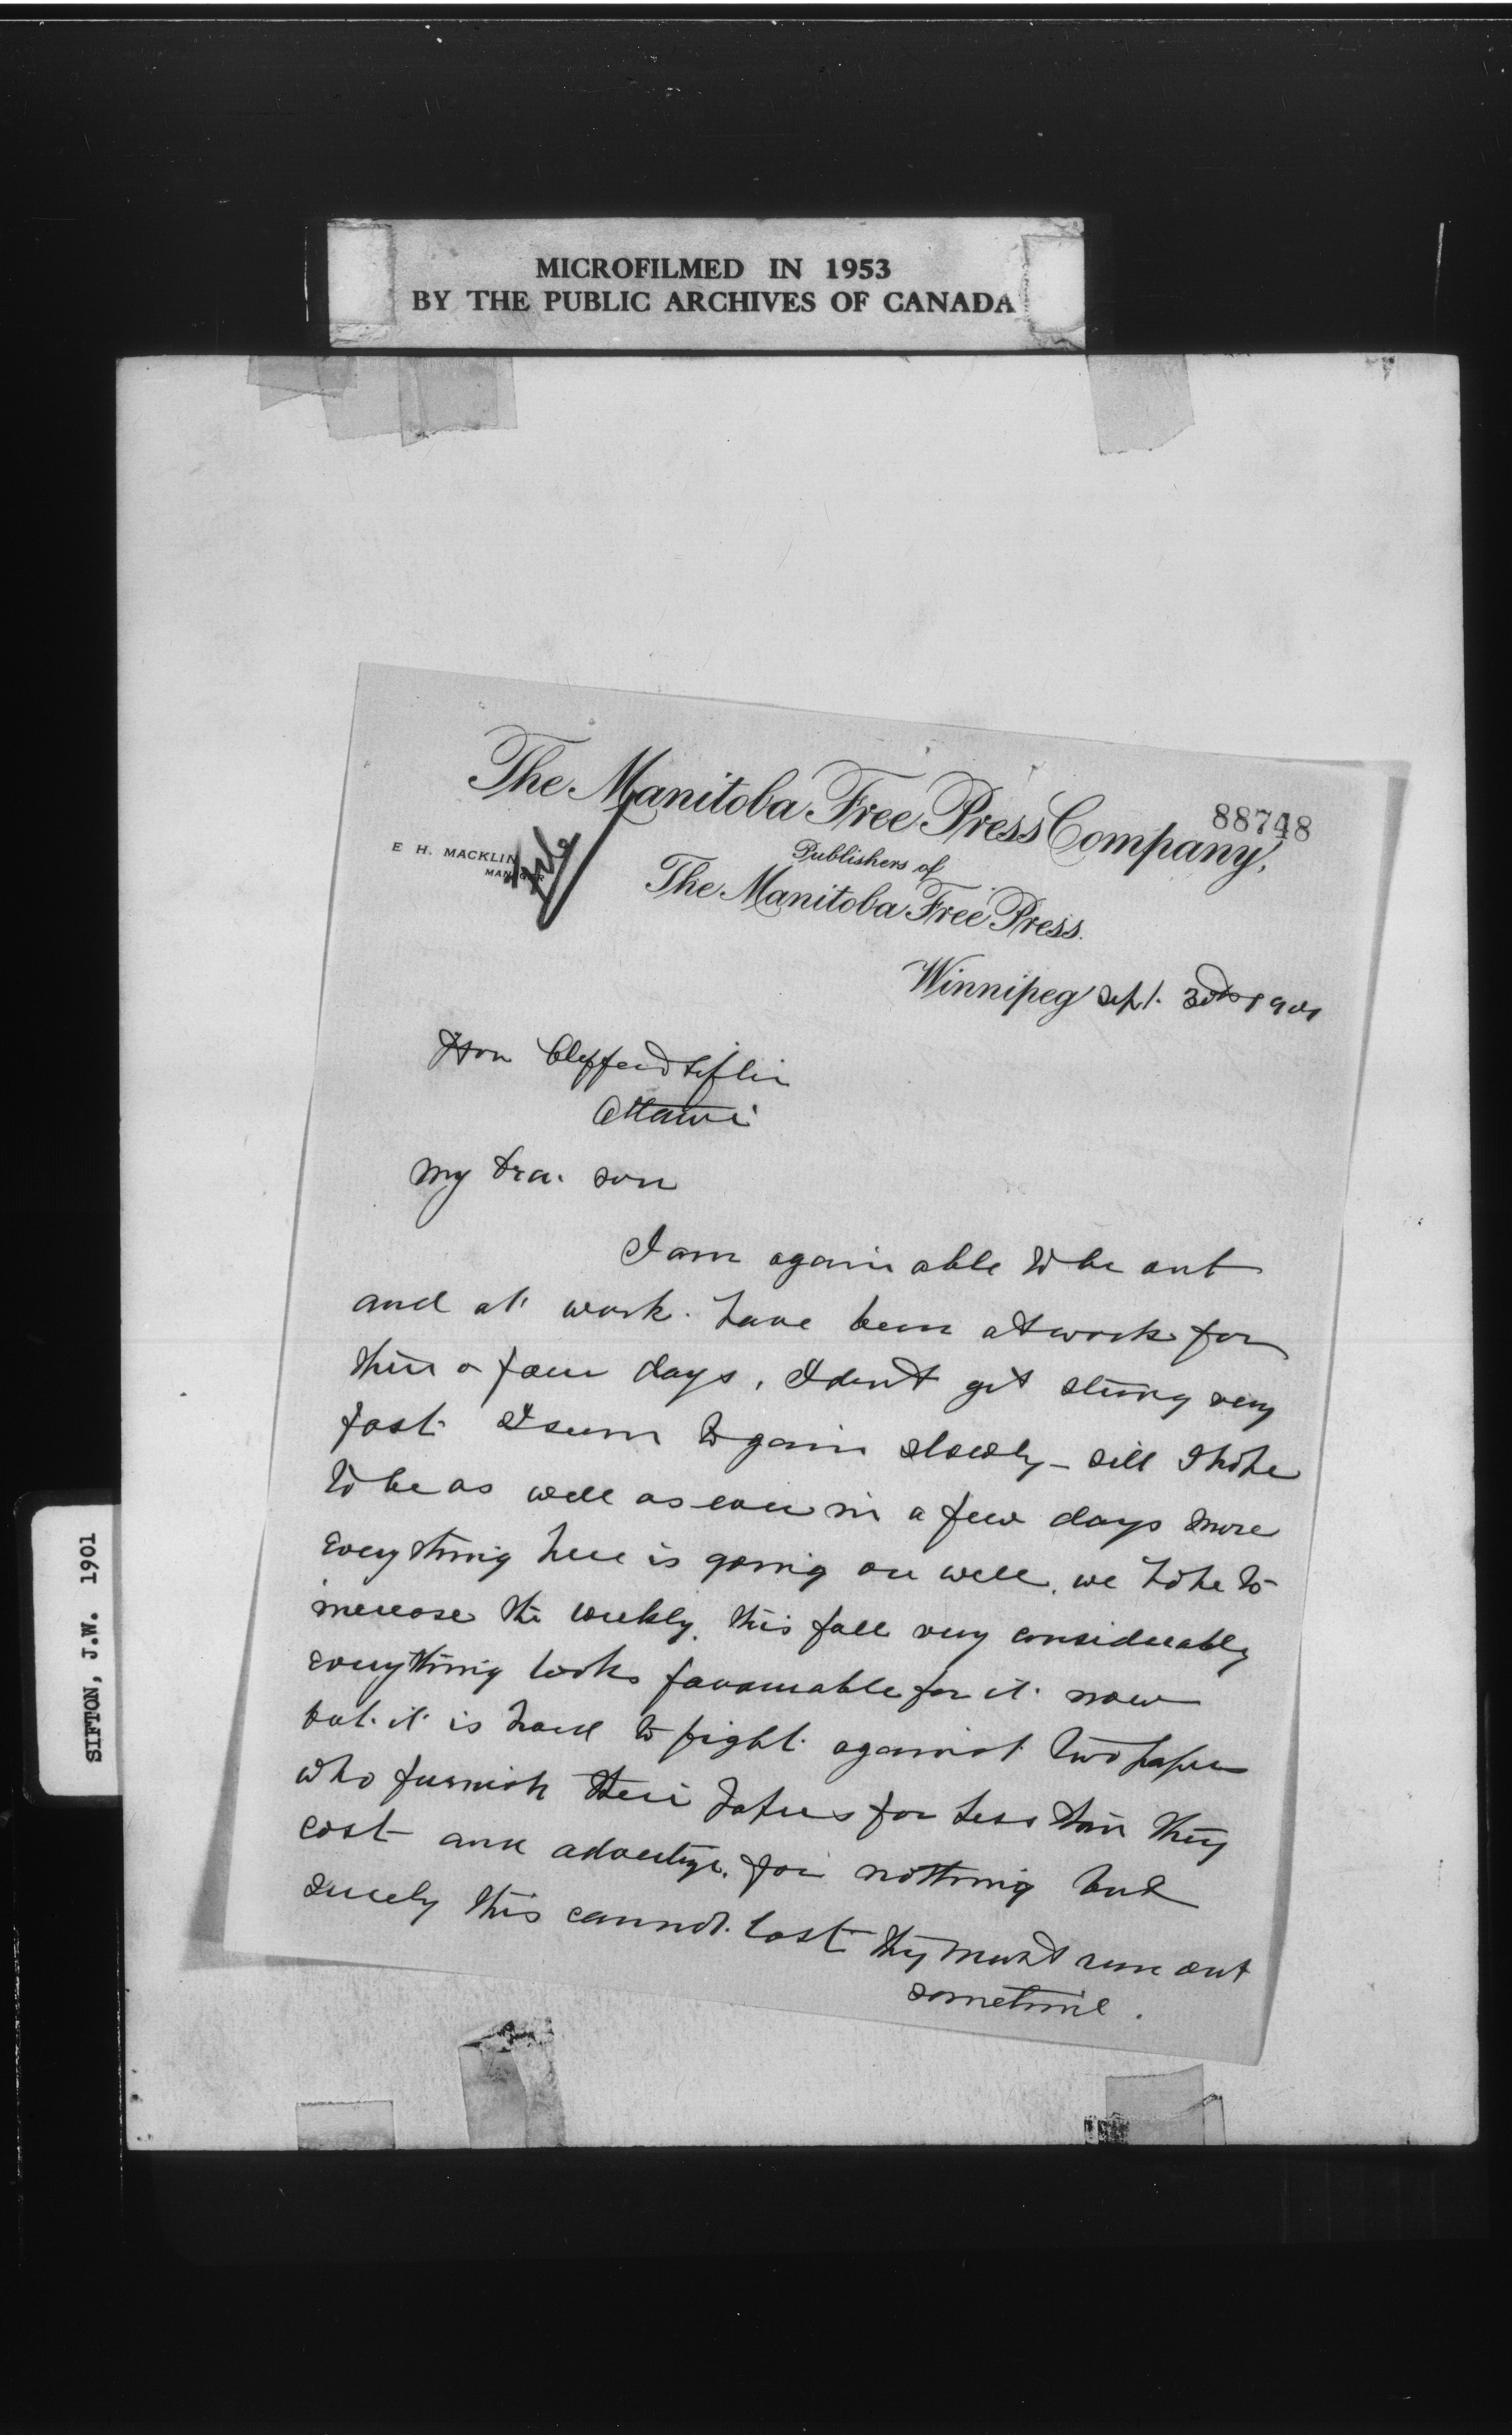 MICROFILMED IN 1953
BY THE PUBLIC ARCHIVES OF CANADA
88748
The Manitoba Free Press Company,
Publishers of
The Manitoba Free Press.
E H. MACKLIN
MANAGER
Winnipeg Sept. 30th 1901
Hon Clifford Sifton
Ottawa
My Dear son
I am again able to be out
and at work. have been at work for
three or four days, I dont get strong very
fast. I seem to gain slowly - still I hope
to be as well as ever in a few days more
Everything here is going on well. we hope to
increase the weekly. this fall very considerably
everything looks favourable for it now
but it is hard to fight against two papers
who furnish their papers for less than they
cost and advertize for nothing but
surely this cannot last they must run out
sometime.
SIFTON, J.W. 1901